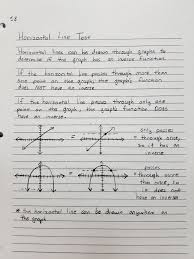 Horizontal Line Test
Horizontal lines can be drawn through graphs to
determine if the graph has an inverse function.
If the horizontal line passes through more than
one point on the graph, the graph's function
does NOT have an inverse.
If the horizontal line passes through only one
point on the graph, the graph function DOES
have an inverse.
only passes
through
once,
so it has
an inverse
passes
through more
than once,
so it does
not have an inverse
* the horizontal line can be drawn anywhere on
the graph